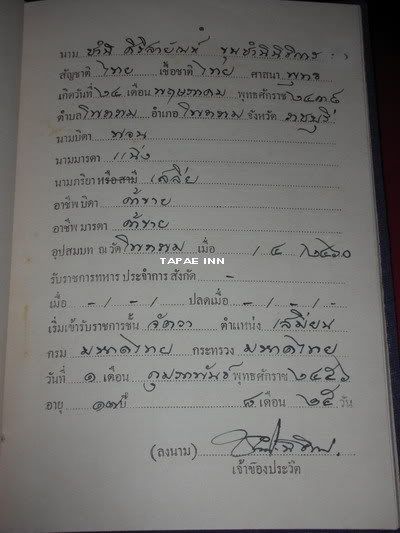 ๑
นาม ชำนิ
สัญชาติ ไทย เชื้อชาติ ไทย ศาสนา พุทธ
เกิดวันที่ ๒๔ เดือน พฤษภาคม พุทธศักราช ๒๔๓๙
ตำบล โพธาราม อำเภอ โพธาราม จังหวัด ราชบุรี
นามบิดา พวน
นามมารดา แน่ง
นามภริยา หรือสามี เสงี่ย
อาชีพ บิดา ค้าขาย
อาชีพ มารดา ค้าขาย
อุปสมบท ณ วัด โพธาราม เมื่อ / ๔ / ๒๔๖๐
TAPAE INN
รับราชการทหาร ประจำการ สังกัด -
เมื่อ - / - / - ปลดเมื่อ - / - / -
เริ่มเข้ารับราชการชั้น จัตวา ตำแหน่ง เสมียน
กรม มหาดไทย กระทรวง มหาดไทย
วันที่ ๑ เดือน กุมภาพันธ์ พุทธศักราช ๒๔๕๖
อายุ ๑๗ ปี ๘ เดือน ๒๕ วัน
(ลงนาม)
เจ้าของประวัติ